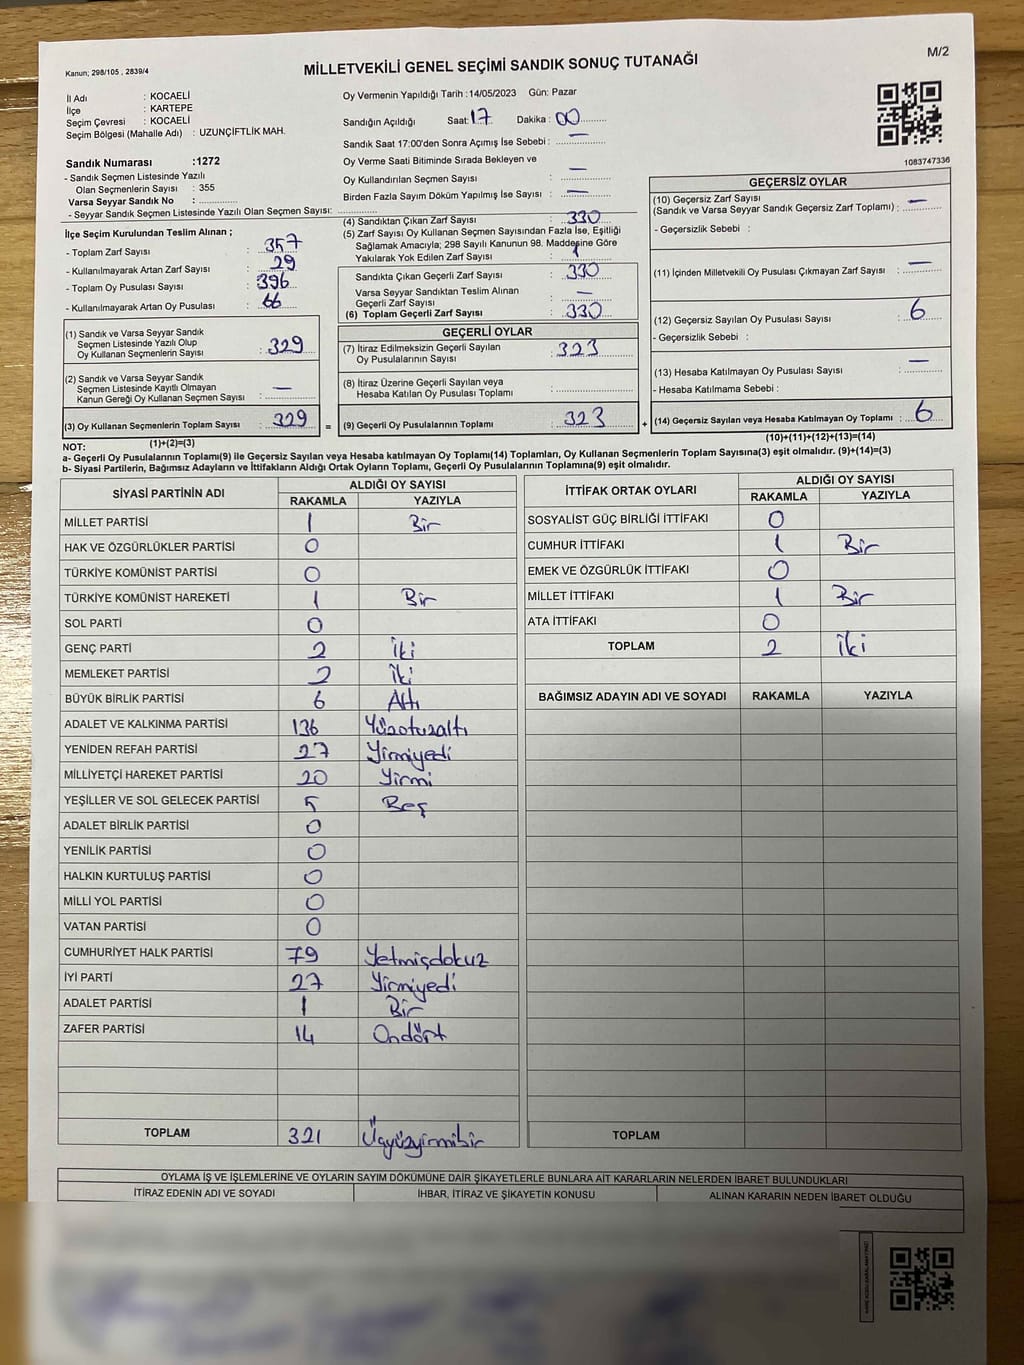 M/2
Kanun; 298/105 , 2839/4
MİLLETVEKİLİ GENEL SEÇİMİ SANDIK SONUÇ TUTANAĞI
İl Adı : KOCAELİ
İlçe : KARTEPE
Seçim Çevresi : KOCAELİ
Seçim Bölgesi (Mahalle Adı) : UZUNÇİFTLİK MAH.
Sandık Numarası :1272
- Sandık Seçmen Listesinde Yazılı
Olan Seçmenlerin Sayısı : 355
Varsa Seyyar Sandık No :
- Seyyar Sandık Seçmen Listesinde Yazılı Olan Seçmen Sayısı:
Oy Vermenin Yapıldığı Tarih :14/05/2023 Gün: Pazar
Sandığın Açıldığı Saat: 17 Dakika : 00
Sandık Saat 17:00'den Sonra Açımış İse Sebebi : —
Oy Verme Saati Bitiminde Sırada Bekleyen ve
Oy Kullandırılan Seçmen Sayısı : —
Birden Fazla Sayım Döküm Yapılmış İse Sayısı : —
1083747336
İlçe Seçim Kurulundan Teslim Alınan ;
- Toplam Zarf Sayısı : 357
- Kullanılmayarak Artan Zarf Sayısı : 29
- Toplam Oy Pusulası Sayısı : 396
- Kullanılmayarak Artan Oy Pusulası : 66
(1) Sandık ve Varsa Seyyar Sandık
Seçmen Listesinde Yazılı Olup
Oy Kullanan Seçmenlerin Sayısı : 329
(2) Sandık ve Varsa Seyyar Sandık
Seçmen Listesinde Kayıtlı Olmayan
Kanun Gereği Oy Kullanan Seçmen Sayısı : —
(3) Oy Kullanan Seçmenlerin Toplam Sayısı : 329
(1)+(2)=(3)
(4) Sandıktan Çıkan Zarf Sayısı : 330
(5) Zarf Sayısı Oy Kullanan Seçmen Sayısından Fazla İse, Eşitliği
Sağlamak Amacıyla; 298 Sayılı Kanunun 98. Maddesine Göre
Yakılarak Yok Edilen Zarf Sayısı : 1
Sandıkta Çıkan Geçerli Zarf Sayısı : 330
Varsa Seyyar Sandıktan Teslim Alınan
Geçerli Zarf Sayısı : —
(6) Toplam Geçerli Zarf Sayısı : 330
GEÇERLİ OYLAR
(7) İtiraz Edilmeksizin Geçerli Sayılan
Oy Pusulalarının Sayısı : 323
(8) İtiraz Üzerine Geçerli Sayılan veya
Hesaba Katılan Oy Pusulası Toplamı :
= (9) Geçerli Oy Pusulalarının Toplamı : 323
GEÇERSİZ OYLAR
(10) Geçersiz Zarf Sayısı
(Sandık ve Varsa Seyyar Sandık Geçersiz Zarf Toplamı) : —
- Geçersizlik Sebebi :
(11) İçinden Milletvekili Oy Pusulası Çıkmayan Zarf Sayısı : —
(12) Geçersiz Sayılan Oy Pusulası Sayısı : 6
- Geçersizlik Sebebi :
(13) Hesaba Katılmayan Oy Pusulası Sayısı : —
- Hesaba Katılmama Sebebi :
+ (14) Geçersiz Sayılan veya Hesaba Katılmayan Oy Toplamı : 6
(10)+(11)+(12)+(13)=(14)
NOT:
a- Geçerli Oy Pusulalarının Toplamı(9) ile Geçersiz Sayılan veya Hesaba katılmayan Oy Toplamı(14) Toplamları, Oy Kullanan Seçmenlerin Toplam Sayısına(3) eşit olmalıdır. (9)+(14)=(3)
b- Siyasi Partilerin, Bağımsız Adayların ve İttifakların Aldığı Ortak Oyların Toplamı, Geçerli Oy Pusulalarının Toplamına(9) eşit olmalıdır.
SİYASİ PARTİNİN ADI ALDIĞI OY SAYISI
RAKAMLA YAZIYLA
MİLLET PARTİSİ 1 Bir
HAK VE ÖZGÜRLÜKLER PARTİSİ 0
TÜRKİYE KOMÜNİST PARTİSİ 0
TÜRKİYE KOMÜNİST HAREKETİ 1 Bir
SOL PARTİ 0
GENÇ PARTİ 2 İki
MEMLEKET PARTİSİ 2 İki
BÜYÜK BİRLİK PARTİSİ 6 Altı
ADALET VE KALKINMA PARTİSİ 136 Yüzotuzaltı
YENİDEN REFAH PARTİSİ 27 Yirmiyedi
MİLLİYETÇİ HAREKET PARTİSİ 20 Yirmi
YEŞİLLER VE SOL GELECEK PARTİSİ 5 Beş
ADALET BİRLİK PARTİSİ 0
YENİLİK PARTİSİ 0
HALKIN KURTULUŞ PARTİSİ 0
MİLLİ YOL PARTİSİ 0
VATAN PARTİSİ 0
CUMHURİYET HALK PARTİSİ 79 Yetmişdokuz
İYİ PARTİ 27 Yirmiyedi
ADALET PARTİSİ 1 Bir
ZAFER PARTİSİ 14 Ondört
TOPLAM 321 Üçyüzyirmibir
İTTİFAK ORTAK OYLARI ALDIĞI OY SAYISI
RAKAMLA YAZIYLA
SOSYALİST GÜÇ BİRLİĞİ İTTİFAKI 0
CUMHUR İTTİFAKI 1 Bir
EMEK VE ÖZGÜRLÜK İTTİFAKI 0
MİLLET İTTİFAKI 1 Bir
ATA İTTİFAKI 0
TOPLAM 2 İki
BAĞIMSIZ ADAYIN ADI VE SOYADI RAKAMLA YAZIYLA
TOPLAM
OYLAMA İŞ VE İŞLEMLERİNE VE OYLARIN SAYIM DÖKÜMÜNE DAİR ŞİKAYETLERLE BUNLARA AİT KARARLARIN NELERDEN İBARET BULUNDUKLARI
İTİRAZ EDENİN ADI VE SOYADI İHBAR, İTİRAZ VE ŞİKAYETİN KONUSU ALINAN KARARIN NEDEN İBARET OLDUĞU